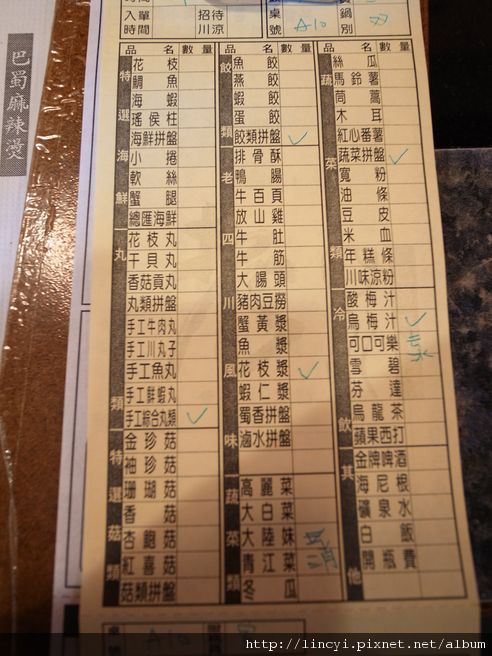 巴蜀麻辣燙
時間
入時 單間
招待
川涼
桌號 A-10
鍋別
品名 數量
特選海鮮
花枝
鯛魚
海蝦
瑤侯柱
海鮮拼盤
小捲
軟絲
蟹腿
總匯海鮮
丸類
花枝丸
干貝丸
香菇貢丸
丸類拼盤
手工牛肉丸
手工川丸子
手工魚丸
手工鮮蝦丸
手工綜合丸類 ✓
特選菇類
金珍菇
袖珍菇
珊瑚菇
香菇
杏鮑菇
紅喜菇
菇類拼盤
品名 數量
餃類
魚餃
燕餃
蝦餃
蛋餃
餃類拼盤 ✓
老四川風味
排骨酥
鴨腸
牛百頁
放山雞
牛肚
牛筋
大腸頭
豬肉豆撈
蟹黃漿
魚漿
花枝漿 ✓
蝦仁漿
蜀香拼盤
滷水拼盤
蔬菜類
高麗菜
大白菜
大陸妹
青江菜
冬瓜
品名 數量
蔬菜類
絲瓜
馬鈴薯
茼蒿
木耳
紅心番薯
蔬菜拼盤 ✓
寬粉
油條
豆皮
米血
年糕條
川味涼粉
冷飲
酸梅汁
烏梅汁 ✓
去冰
可口可樂
雪碧
芬達
烏龍茶
蘋果西打
其他
金牌啤酒
海尼根
礦泉水
白飯
開瓶費
A-10
http://lincyi.pixnet.net/album